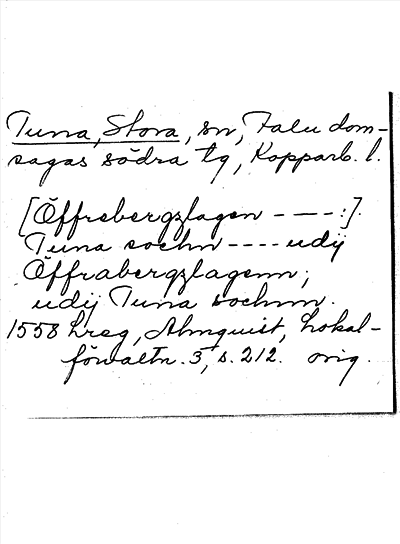 Tuna, Stora, sn, Falu dom-
sagas södra tg, Kopparb. l.
[Öffrebergzlagen ----:].
Tuna sochn ---- udij
Öffrabergzlagenn;
udij Tuna sochnn.
1558 Lreg, Almquist, Lokal-
förvaltn. 3, s. 212. orig.